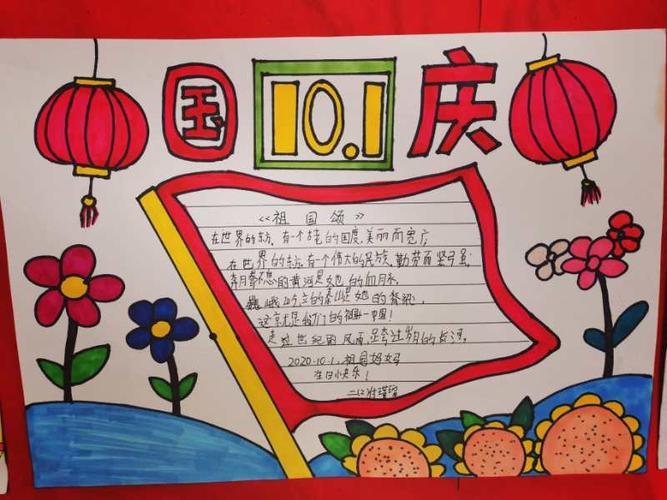 国 10.1 庆
《祖国颂》
在世界的东方,有一个古老的国度,美丽而宽广
在世界的东方,有一个伟大的民族,勤劳而坚强
奔腾不息的黄河是她的血脉,
巍峨屹立的泰山是她的脊梁,
这就是我们的祖国—中国!
走过世纪的风雨,跨过岁月的长河。
2020.10.1,祖国妈妈
生日快乐!